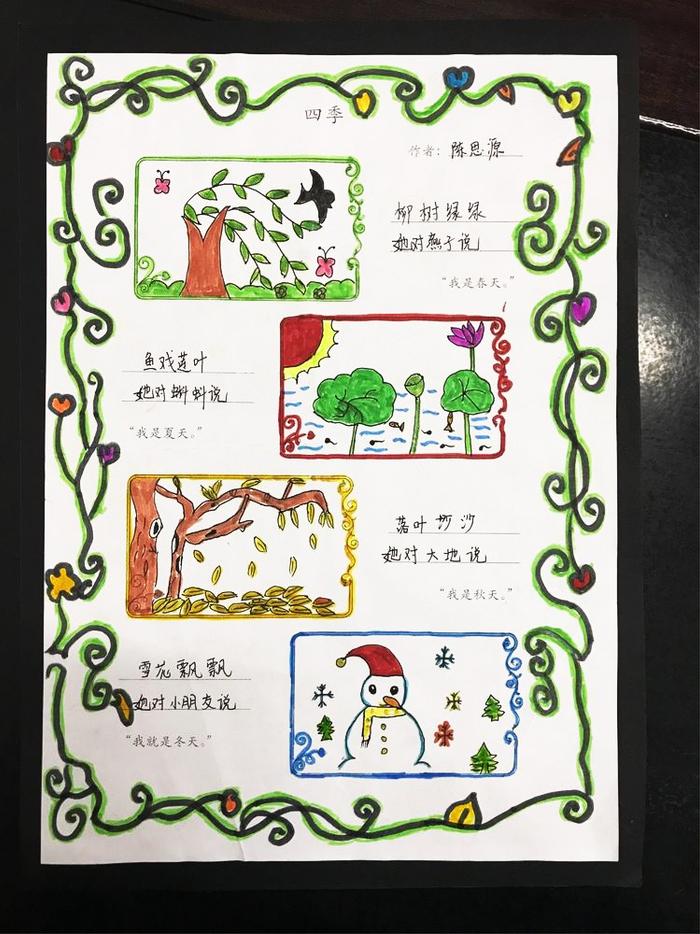 四季
作者：陈思源
柳树绿绿
她对燕子说
“我是春天。”
鱼戏莲叶
她对蝌蚪说
“我是夏天。”
落叶沙沙
她对大地说
“我是秋天。”
雪花飘飘
她对小朋友说
“我就是冬天。”